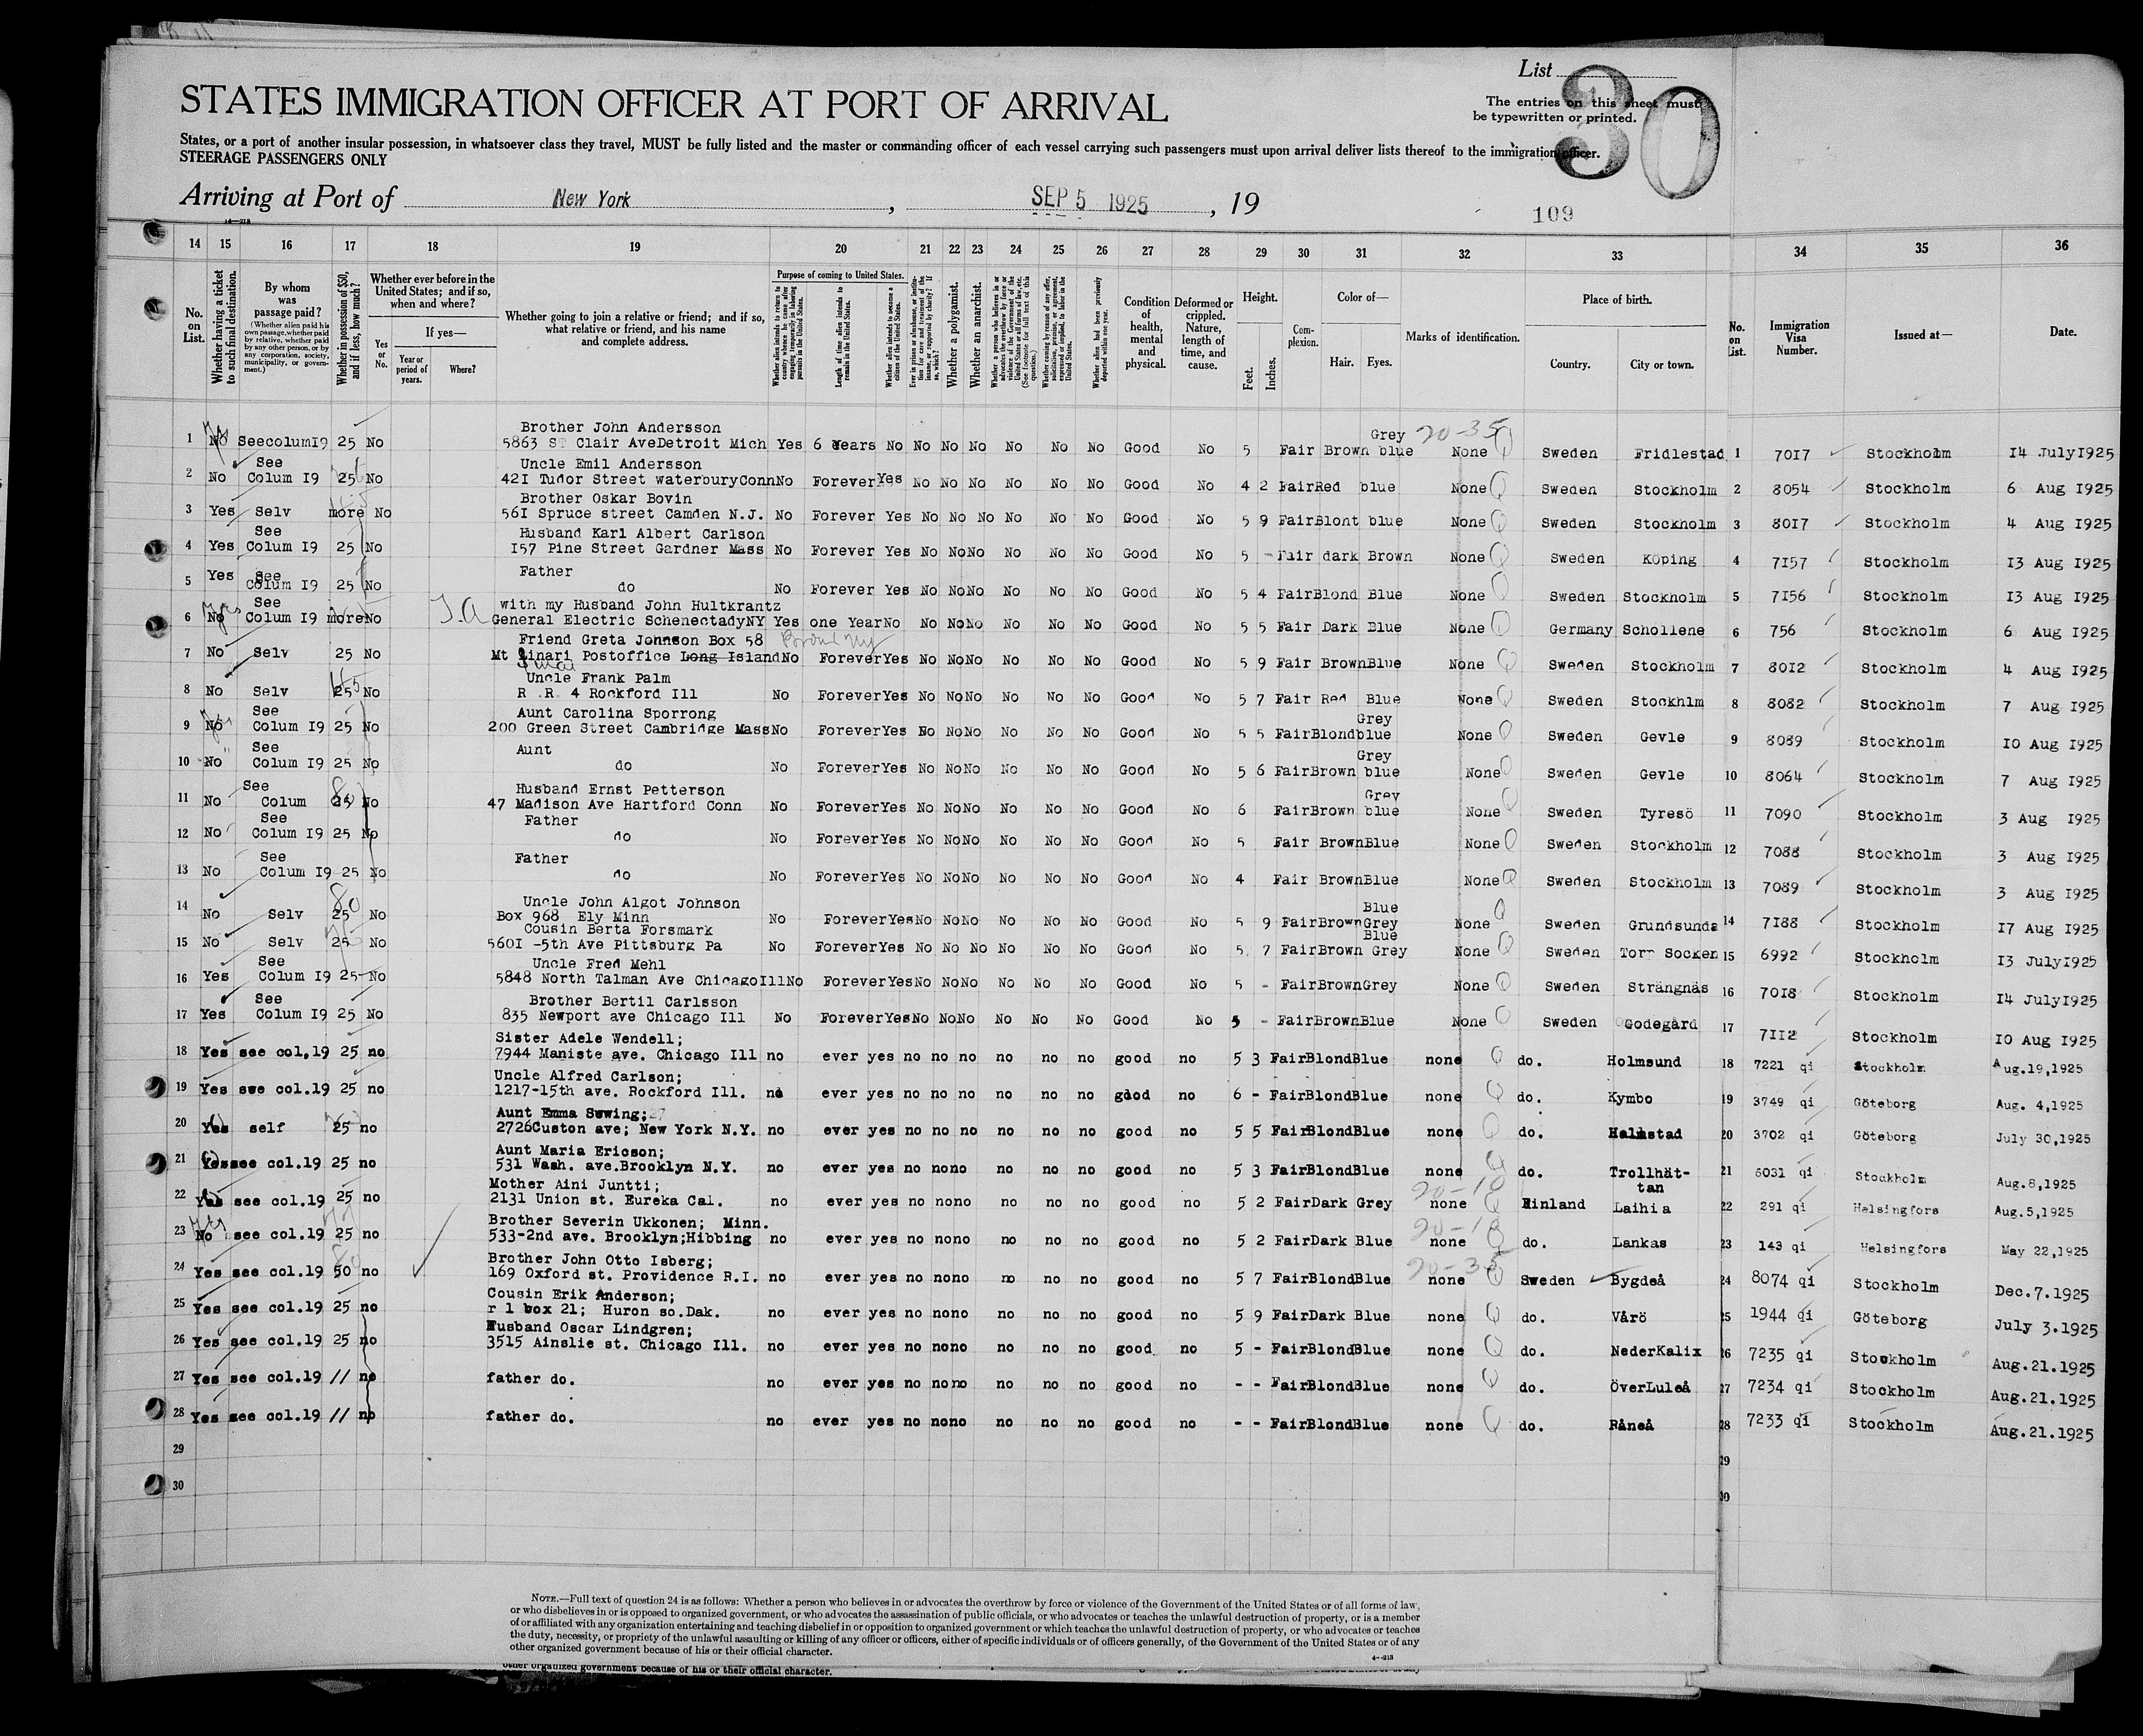 List
30
The entries on this sheet must
be typewritten or printed.
STATES IMMIGRATION OFFICER AT PORT OF ARRIVAL
States, or a port of another insular possession, in whatsoever class they travel, MUST be fully listed and the master or commanding officer of each vessel carrying such passengers must upon arrival deliver lists thereof to the immigration officer.
STEERAGE PASSENGERS ONLY
Arriving at Port of New York, SEP 5 1925, 19
109
14 15 16 17 18 19 20 21 22 23 24 25 26 27 28 29 30 31 32 33 34 35 36
No. on List.
Whether having a ticket to such final destination.
By whom was passage paid?
(Whether alien paid his own passage, whether paid by relative, whether paid by any other person, or by any corporation, society, municipality, or government.)
Whether in possession of $50, and if less, how much?
Whether ever before in the United States; and if so, when and where?
Yes or No.
If yes—
Year or period of years.
Where?
Whether going to join a relative or friend; and if so, what relative or friend, and his name and complete address.
Purpose of coming to United States.
Length of time alien intends to remain in the United States.
Whether alien intends to become a citizen of the United States.
Whether a polygamist.
Whether an anarchist.
Condition of health, mental and physical.
Deformed or crippled. Nature, length of time, and cause.
Height.
Feet.
Inches.
Complexion.
Color of—
Hair.
Eyes.
Marks of identification.
Place of birth.
Country.
City or town.
No. on List.
Immigration Visa Number.
Issued at—
Date.
Brother John Andersson Grey 20-35
1 No SeecolumI9 25 No 5863 ST Clair AveDetroit Mich Yes 6 Years No No No No No No No Good No 5 Fair Brown blue None Sweden Fridlestad 1 70I7 Stockholm I4 JulyI925
See Uncle Emil Andersson
2 No Colum I9 25 No 42I Tudor Street waterburyConn No Forever Yes No No No No No No Good No 4 2 FairRed blue None Sweden Stockholm 2 8054 Stockholm 6 Aug I925
Brother Oskar Bovin
3 Yes Selv more No 56I Spruce street Camden N.J. No Forever Yes No No No No No No Good No 5 9 FairBlont blue None Sweden Stockholm 3 80I7 Stockholm 4 Aug I925
See Husband Karl Albert Carlson
4 Yes Colum I9 25 No I57 Pine Street Gardner Mass No Forever Yes No NoNo No No No Good No 5 - Fair dark Brown None Sweden Köping 4 7I57 Stockholm I3 Aug I925
Yes See Father
5 Colum I9 25 No do No Forever Yes No NoNo No No No Good No 5 4 FairBlond Blue None Sweden Stockholm 5 7I56 Stockholm I3 Aug I925
See with my Husband John Hultkrantz
6 No Colum I9 moreNo General Electric SchenectadyNY Yes one YearNo No NoNo No No No Good No 5 5 Fair Dark Blue None Germany Schollene 6 756 Stockholm 6 Aug I925
Friend Greta Jonnson Box 58
7 No Selv 25 No Mt Sinari Postoffice Long Island No ForeverYes No NoNo No No No Good No 5 9 Fair BrownBlue None Sweden Stockholm 7 80I2 Stockholm 4 Aug I925
Sinai
Uncle Frank Palm
8 No Selv 25 No R .R. 4 Rockford Ill No ForeverYes No NoNo No No No Good No 5 7 Fair Red Blue None Sweden Stockhlm 8 8082 Stockholm 7 Aug I925
See Aunt Carolina Sporrong Grey
9 No Colum I9 25 No 200 Green Street Cambridge MassNo ForeverYes No NoNo No No No Good No 5 5 FairBlondblue None Sweden Gevle 9 8089 Stockholm I0 Aug I925
See Aunt Grey
10 No Colum I9 25 No do No ForeverYes No NoNo No No No Good No 5 6 FairBrown blue None Sweden Gevle 10 8064 Stockholm 7 Aug I925
See Husband Ernst Petterson Grey
11 No Colum 25 No 47 Madison Ave Hartford Conn No ForeverYes No NoNo No No No Good No 6 FairBrown blue None Sweden Tyresö 11 7090 Stockholm 3 Aug I925
See Father
12 No Colum I9 25 No do No ForeverYes No NoNo No No No Good No 5 Fair BrownBlue None Sweden Stockholm 12 7088 Stockholm 3 Aug I925
See Father
13 No Colum I9 25 No do No ForeverYes No NoNo No No No Good No 4 Fair BrownBlue None Sweden Stockholm 13 7089 Stockholm 3 Aug I925
80 Uncle John Algot Johnson Blue
14 No Selv 25 No Box 968 Ely Minn No ForeverYesNo NoNo No No No Good No 5 9 FairBrownGrey None Sweden Grundsunda 14 7I88 Stockholm I7 Aug I925
Cousin Berta Forsmark Blue
15 No Selv 25 No 560I -5th Ave Pittsburg Pa No ForeverYes No No No No No No Good No 5 7 FairBrown Grey None Sweden Torp Socken 15 6992 Stockholm I3 JulyI925
See Uncle Fred Mehl
16 Yes Colum I9 25 No 5848 North Talman Ave ChicagoIllNo ForeverYesNo NoNo No No No Good No 5 - FairBrownGrey None Sweden Strängnäs 16 70I8 Stockholm I4 JulyI925
See Brother Bertil Carlsson
17 Yes Colum I9 25 No 835 Newport ave Chicago Ill No ForeverYesNo NoNo No No No Good No 5 - FairBrownBlue None Sweden Godegård 17 7II2 Stockholm I0 Aug I925
Sister Adele Wendell;
18 Yes see col,19 25 no 7944 Maniste ave. Chicago Ill no ever yes no no no no no no good no 5 3 FairBlondBlue none do. Holmsund 18 7221 qi Stockholm Aug.19,1925
Uncle Alfred Carlson;
19 Yes swe col.19 25 no 1217-15th ave. Rockford Ill. no ever yes no no no no no no good no 6 - FairBlondBlue none do. Kymbo 19 3749 qi Göteborg Aug. 4,1925
Aunt Emma Suwing;
20 Yes self 25 no 2726Custon ave; New York N.Y. no ever yes no no no no no no good no 5 5 FairBlondBlue none do. Halmstad 20 3702 qi Göteborg July 30,1925
Aunt Maria Ericson;
21 Yessee col.19 25 no 531 Wash. ave.Brooklyn N.Y. no ever yes no nono no no no good no 5 3 FairBlondBlue none do. Trollhät- 21 6031 qi Stockholm Aug.8,1925
Mother Aini Juntti; tan
22 Yes see col.19 25 no 2131 Union st. Eureka Cal. no ever yes no nono no no no good no 5 2 FairDark Grey none Finland Laihia 22 291 qi Helsingfors Aug.5,1925
Brother Severin Ukkonen; Minn.
23 No see col.19 25 no 533-2nd ave. Brooklyn;Hibbing no ever yes no nono no no no good no 5 2 FairDark Blue none do. Lankas 23 143 qi Helsingfors May 22,1925
Brother John Otto Isberg; 20-35
24 Yes see col.19 50 no 169 Oxford st. Providence R.I. no ever yes no nono no no no good no 5 7 FairBlondBlue none Sweden Bygdeå 24 8074 qi Stockholm Dec.7.1925
Cousin Erik Anderson;
25 Yes see col.19 25 no r 1 box 21; Huron so.Dak. no ever yes no nono no no no good no 5 9 FairDark Blue none do. Vårö 25 1944 qi Göteborg July 3.1925
Husband Oscar Lindgren;
26 Yes see col.19 25 no 3515 Ainslie st. Chicago Ill. no ever yes no nono no no no good no 5 - FairBlondBlue none do. NederKalix 26 7235 qi Stockholm Aug.21.1925
27 Yes see col.19 // no father do. no ever yes no nono no no no good no - - FairBlondBlue none do. ÖverLuleå 27 7234 qi Stockholm Aug.21.1925
28 Yes see col.19 // no father do. no ever yes no nono no no no good no - - FairBlondBlue none do. Råneå 28 7233 qi Stockholm Aug.21.1925
29 29
30 30
NOTE.—Full text of question 24 is as follows: Whether a person who believes in or advocates the overthrow by force or violence of the Government of the United States or of all forms of law,
or who disbelieves in or is opposed to organized government, or who advocates the assassination of public officials, or who advocates or teaches the unlawful destruction of property, or is a member
of or affiliated with any organization entertaining and teaching disbelief in or opposition to organized government or which teaches the unlawful destruction of property, or who advocates or teaches
the duty, necessity, or propriety of the unlawful assaulting or killing of any officer or officers, either of specific individuals or of officers generally, of the Government of the United States or of any
other organized government because of his or their official character.
other organized government because of his or their official character.